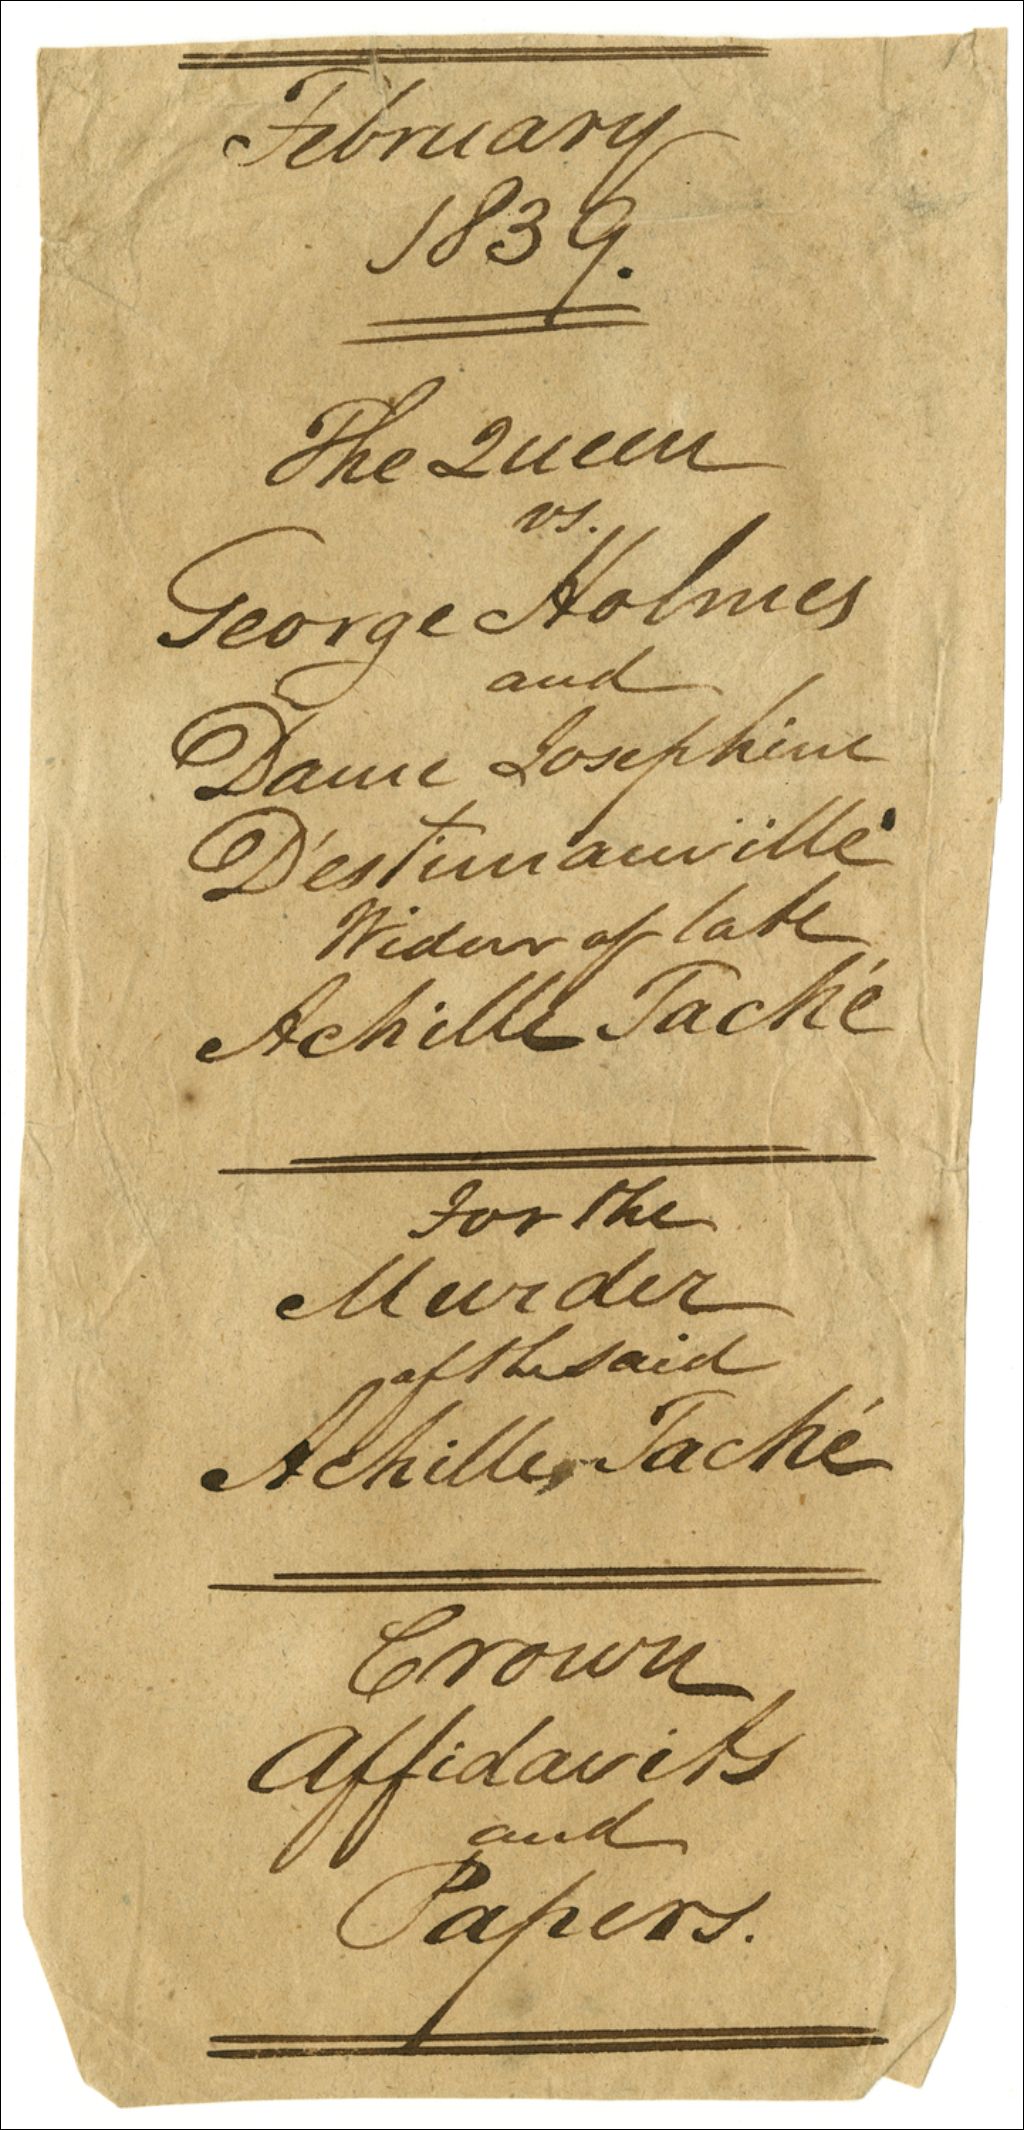 February
1839.
The Queen
vs.
George Holmes
and
Dame Josephine
D'estimauvillé
Widow of late
Achille Taché
For the
Murder
of the said
Achille, Taché
Crown
Affidavits
and
Papers.